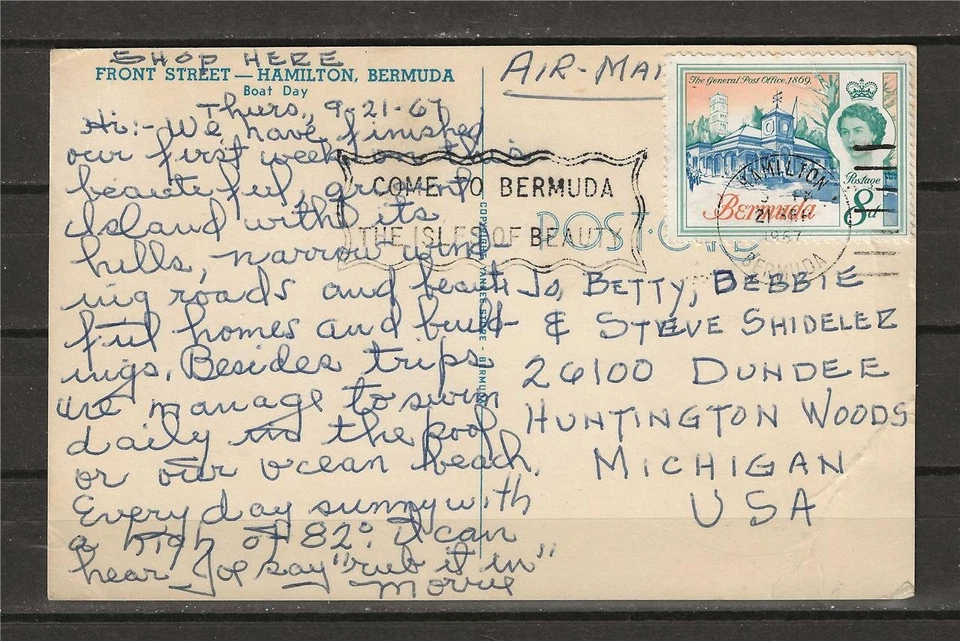 SHOP HERE
FRONT STREET — HAMILTON, BERMUDA
Boat Day
Thurs, 9-21-67
Hi:- We have finished
our first week on this
beautiful, green
Island with its
hills, narrow wind-
ing roads and beauti
ful homes and build-
ings. Besides trips
we manage to swim
daily in the pool
or our ocean beach.
Every day sunny with
a high of 82°. I can
hear Joe say "rub it in"
Morrie
COPYRIGHT YANKEE STORE - BERMUDA
AIR-MAI
COME TO BERMUDA
THE ISLES OF BEAUTY
POST CARD
The General Post Office, 1869.
Postage
Bermuda
8d
HAMILTON
21 SEP
1967
BERMUDA
Jo, BETTY, DEBBIE
& STEVE SHIDELER
26100 DUNDEE
HUNTINGTON WOODS
MICHIGAN
USA